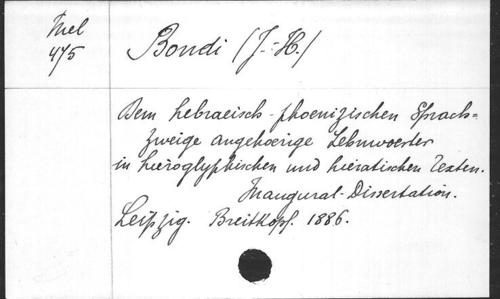 Mel
475
Bondi (J.-H.)
Dem hebraeisch-phoenizischen Sprach=
zweige angehoerige Lehnwoerter
in hieroglyphischen und hieratischen Texten.
Inaugural-Dissertation.
Leipzig. Breitkopf. 1886.